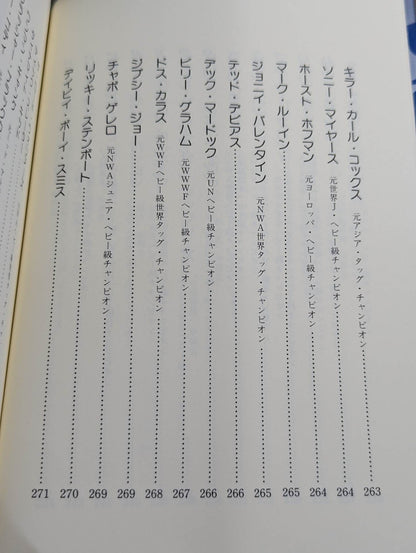 キラー・カール・コックス　元アジア・タッグ・チャンピオン……263
ソニー・マイヤース　元世界J・ヘビー級チャンピオン……264
ホースト・ホフマン　元ヨーロッパ・ヘビー級チャンピオン……264
マーク・ルーイン……265
ジョニイ・バレンタイン　元NWA世界タッグ・チャンピオン……265
テッド・デビアス……266
デック・マードック　元UNヘビー級チャンピオン……266
ビリー・グラハム　元WWWFヘビー級チャンピオン……267
ドス・カラス　元WWFヘビー級世界タッグ・チャンピオン……268
ジプシー・ジョー……269
チャボ・ゲレロ　元NWAジュニア・ヘビー級チャンピオン……269
リッキー・ステンボート……270
デイビイ・ボーイ・スミス……271